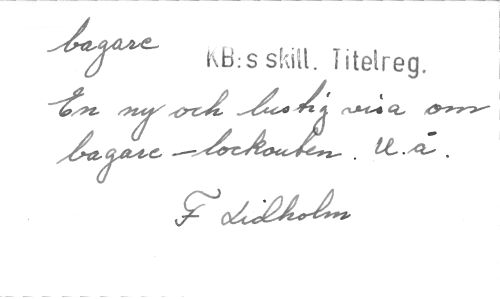 bagare
KB:s skill. Titelreg.
En ny och lustig visa om
bagare-lockouten. U.å.
F Lidholm